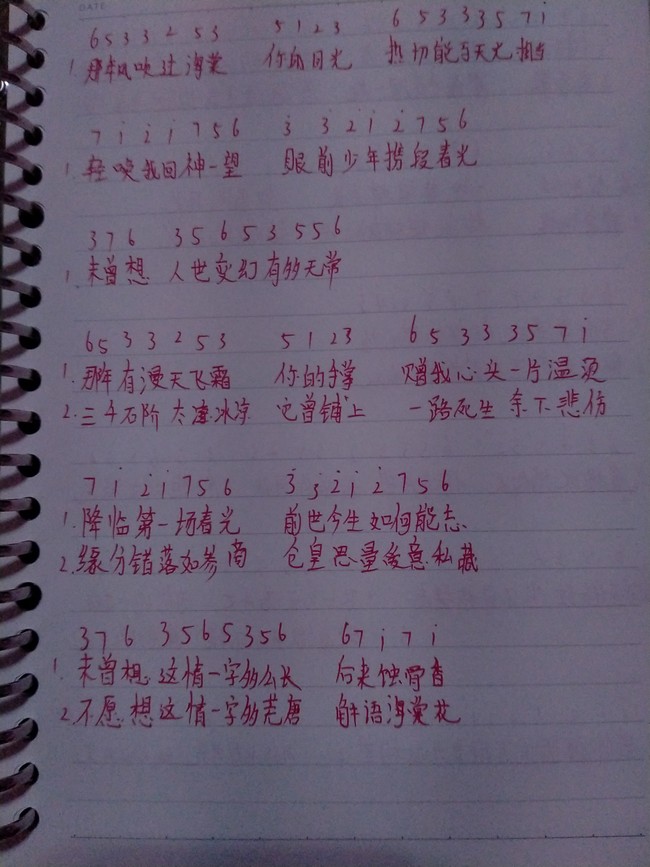 DATE
6 5 3 3 2 5 3 5 1 2 3 6 5 3 3 3 5 7 i
1. 那年风吹过海棠 你的目光 热切能与天光相当
7 i 2̇ i 7 5 6 3̇ 3̇ 2̇ i 2̇ 7 5 6
1. 轻唤我回神一望 眼前少年携段春光
3 7 6 3 5 6 5 3 5 5 6
1. 未曾想 人世变幻有多无常
6 5 3 3 2 5 3 5 1 2 3 6 5 3 3 3 5 7 i
1. 那年有漫天飞霜 你的手掌 赠我心头一片温烫
2. 三千石阶太凄冰凉 它曾铺上 一路死生余下悲伤
7 i 2̇ i 7 5 6 3̇ 3 2̇ i 2̇ 7 5 6
1. 降临第一场春光 前世今生如何能忘
2. 缘分错落如参商 仓皇思量後意私藏
3 7 6 3 5 6 5 3 5 6 6 7 i 7 i
1. 未曾想 这情一字多么长 后来蚀骨香
2. 不愿想这情一字多荒唐 解语海棠花